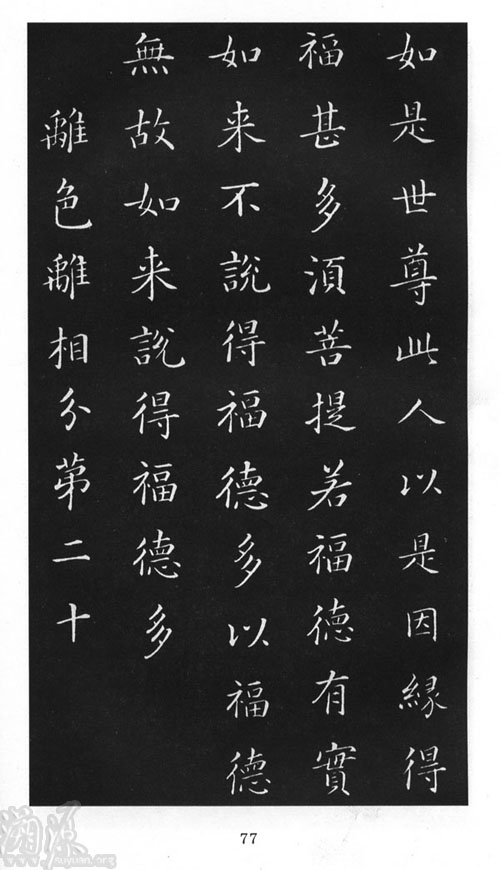 如是世尊此人以是因緣得
福甚多須菩提若福德有實
如来不說得福德多以福德
無故如来說得福德多
離色離相分第二十
77
溯源
www.suyuan.org